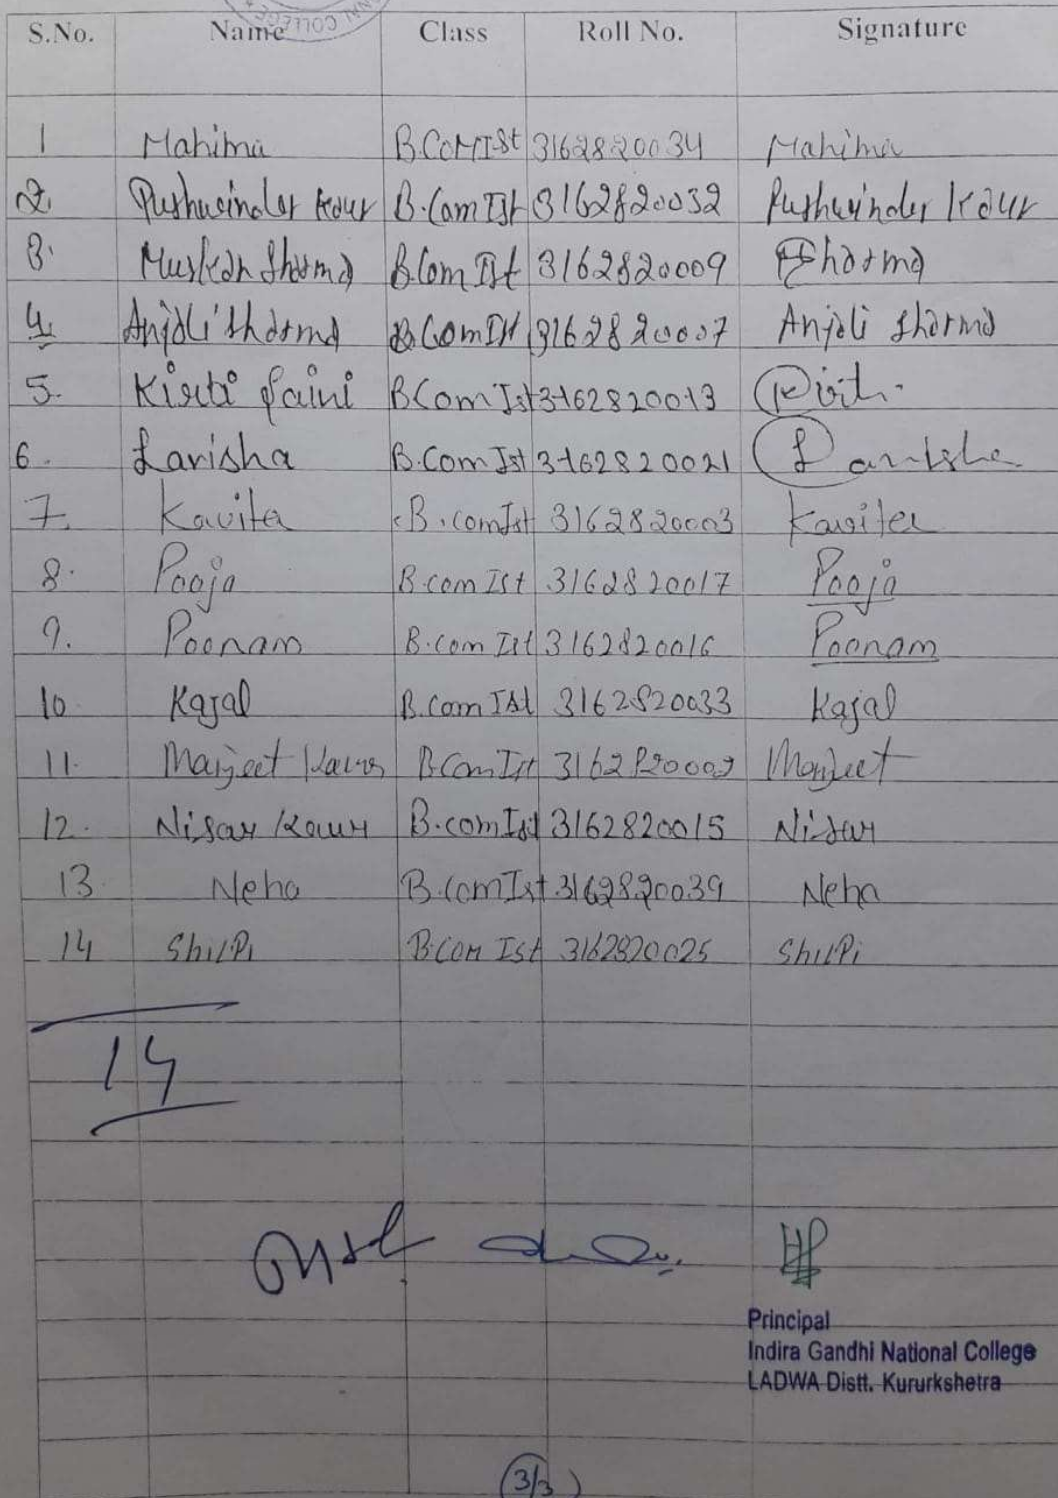 COLLEGE
S.No. Name Class Roll No. Signature
1 Mahima B.COM Ist 3162820034 Mahima
2. Pushwinder Kaur B.Com Ist 3162820032 Pushwinder Kaur
3. Muskan Sharma B.Com Ist 3162820009 Sharma
4. Anjali Sharma B.Com Ist 3162820007 Anjali Sharma
5. Kirti Saini B.Com Ist 3162820013 Kirti
6. Larisha B.Com Ist 3162820021 Larisha
7. Kavita B.com Ist 3162820003 Kavita
8. Pooja B.com Ist 3162820017 Pooja
9. Poonam B.com Ist 3162820016 Poonam
10 Kajal B.Com Ist 3162820033 Kajal
11. Manjeet Kaur B.Com Ist 3162820002 Manjeet
12. Nisar Kaur B.com Ist 3162820015 Nisar
13 Neha B.Com Ist 3162820039 Neha
14 ShilPi B.Com Ist 3162820025 ShilPi
14
Principal
Indira Gandhi National College
LADWA Distt. Kururkshetra
3/3